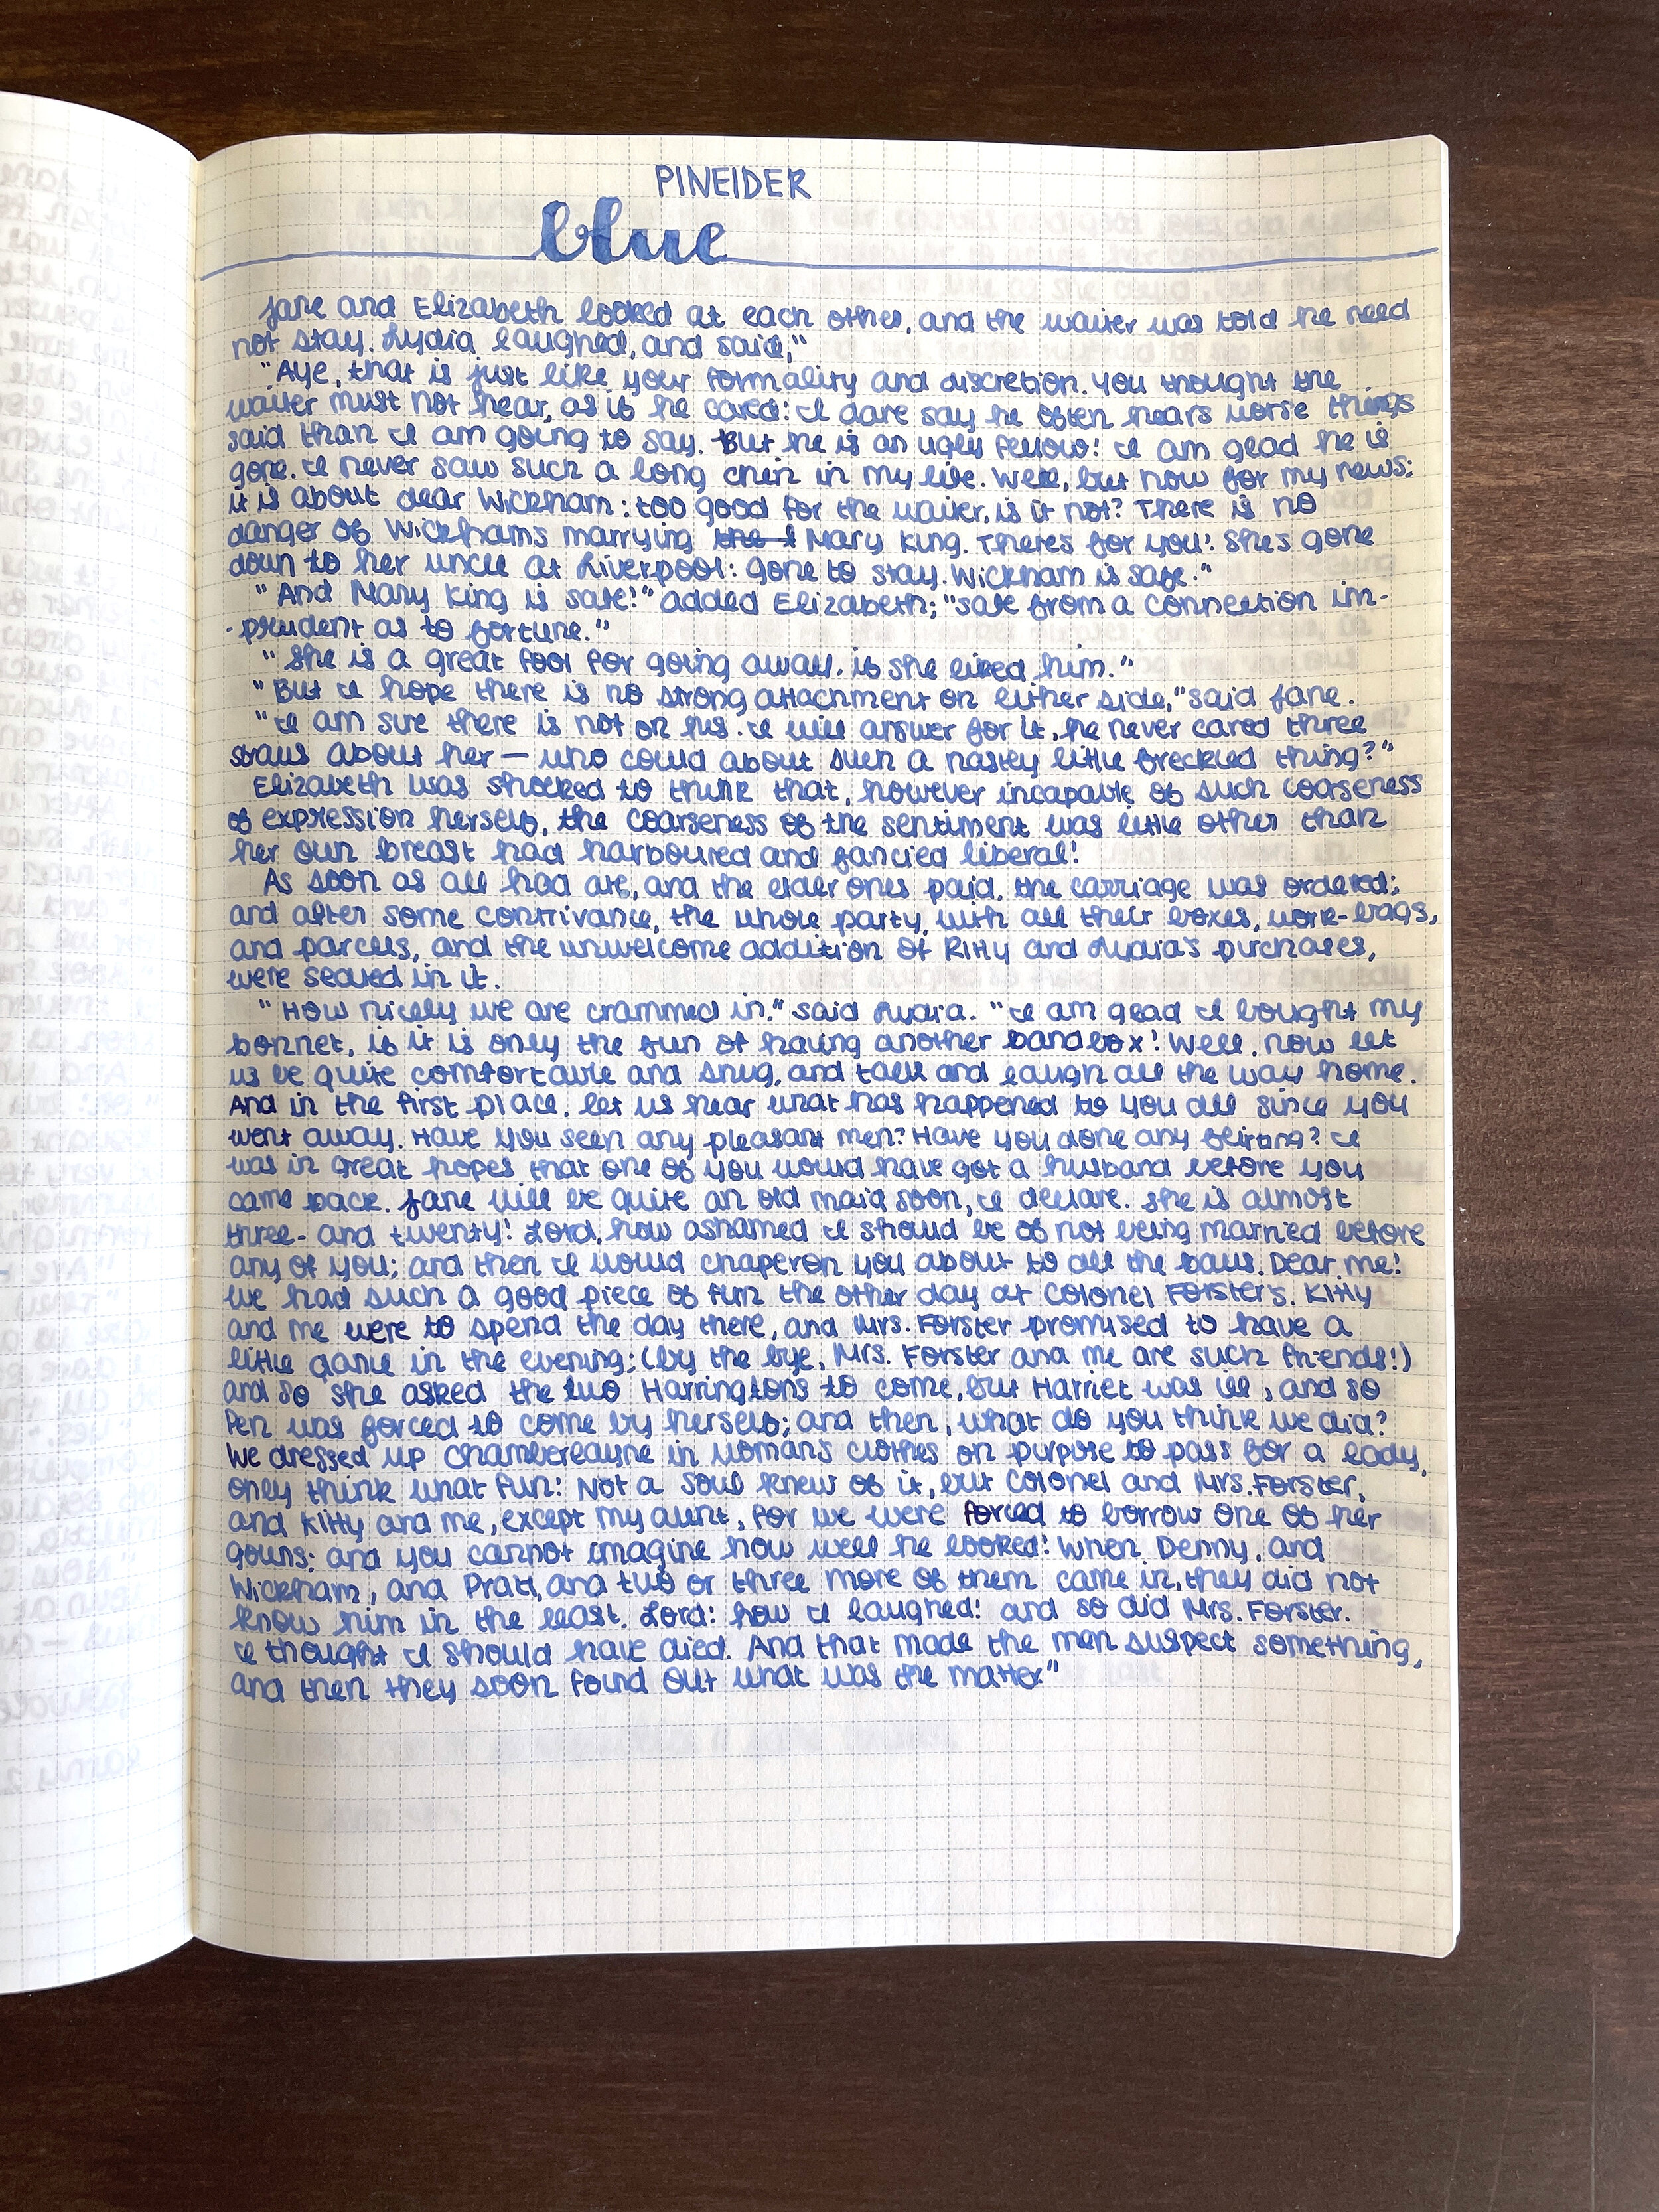 PINEIDER
blue
Jane and Elizabeth looked at each other, and the waiter was told he need
not stay. Lydia laughed, and said,"
"Aye, that is just like your formality and discretion. You thought the
waiter must not hear, as if he cared! I dare say he often hears worse things
said than I am going to say. But he is an ugly fellow! I am glad he is
gone. I never saw such a long chin in my life. Well, but now for my news:
it is about dear Wickham: too good for the waiter, is it not? There is no
danger of Wickham's marrying the Mary King. There's for you! She's gone
down to her uncle at Liverpool: gone to stay. Wickham is safe."
"And Mary King is safe!" added Elizabeth; "safe from a connection im-
-prudent as to fortune."
"She is a great fool for going away, if she liked him."
"But I hope there is no strong attachment on either side," said Jane.
"I am sure there is not on his. I will answer for it, he never cared three
straws about her — who could about such a nasty little freckled thing?"
Elizabeth was shocked to think that, however incapable of such coarseness
of expression herself, the coarseness of the sentiment was little other than
her own breast had harboured and fancied liberal!
As soon as all had ate, and the elder ones paid, the carriage was ordered;
and after some contrivance, the whole party, with all their boxes, work-bags,
and parcels, and the unwelcome addition of Kitty and Lydia's purchases,
were seated in it.
"How nicely we are crammed in," said Lydia. "I am glad I bought my
bonnet, if it is only the fun of having another bandbox! Well, now let
us be quite comfortable and snug, and talk and laugh all the way home.
And in the first place, let us hear what has happened to you all since you
went away. Have you seen any pleasant men? Have you done any flirting? I
was in great hopes that one of you would have got a husband before you
came back. Jane will be quite an old maid soon, I declare. She is almost
three- and twenty! Lord, how ashamed I should be of not being married before
any of you; and then I would chaperon you about to all the balls. Dear me!
we had such a good piece of fun the other day at Colonel Forster's. Kitty
and me were to spend the day there, and Mrs. Forster promised to have a
little dance in the evening; (by the bye, Mrs. Forster and me are such friends!)
and so she asked the two Harringtons to come, but Harriet was ill, and so
Pen was forced to come by herself; and then, what do you think we did?
We dressed up Chamberlayne in woman's clothes on purpose to pass for a lady,
only think what fun! Not a soul knew of it, but Colonel and Mrs. Forster,
and Kitty and me, except my aunt, for we were forced to borrow one of her
gowns; and you cannot imagine how well he looked! When Denny, and
Wickham, and Pratt, and two or three more of them came in, they did not
know him in the least. Lord! how I laughed! and so did Mrs. Forster.
I thought I should have died. And that made the men suspect something,
and then they soon found out what was the matter."